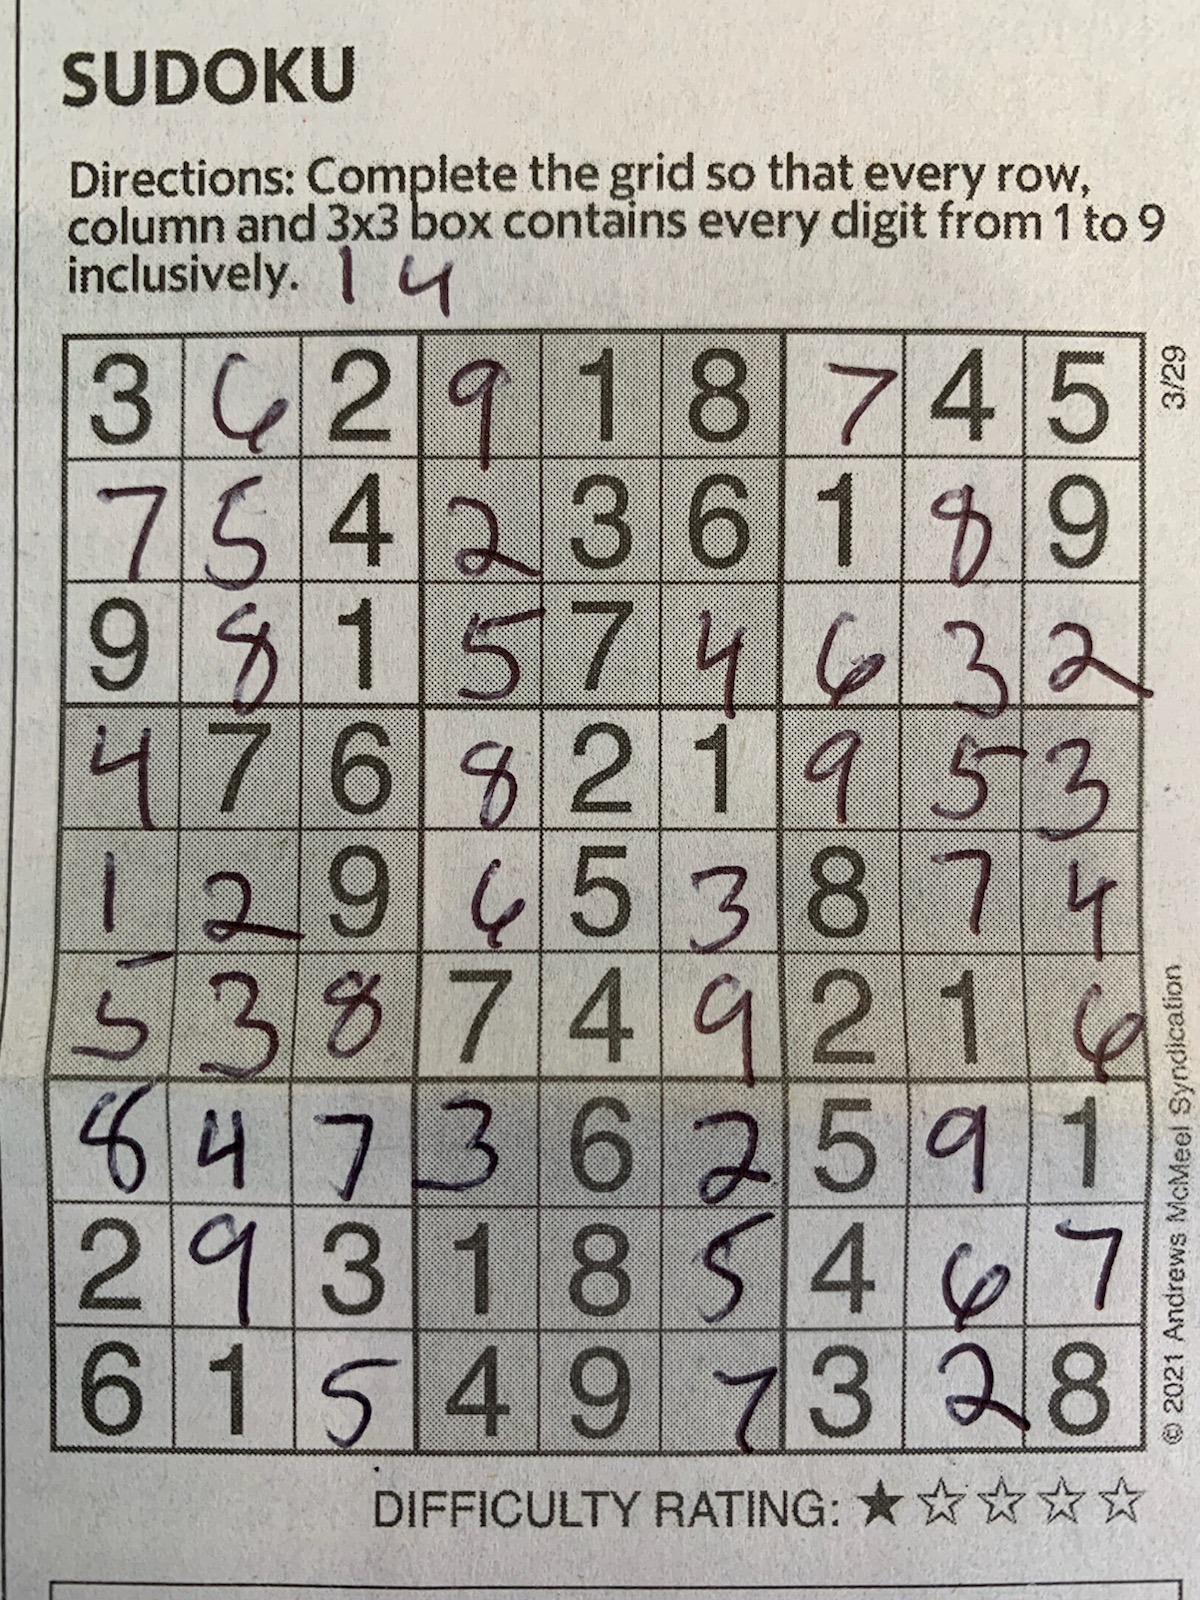 SUDOKU
Directions: Complete the grid so that every row,
column and 3x3 box contains every digit from 1 to 9
inclusively. 1 4
3 6 2 9 1 8 7 4 5
7 5 4 2 3 6 1 8 9
9 8 1 5 7 4 6 3 2
4 7 6 8 2 1 9 5 3
1 2 9 6 5 3 8 7 4
5 3 8 7 4 9 2 1 6
8 4 7 3 6 2 5 9 1
2 9 3 1 8 5 4 6 7
6 1 5 4 9 7 3 2 8
3/29
© 2021 Andrews McMeel Syndication
DIFFICULTY RATING: ★☆☆☆☆